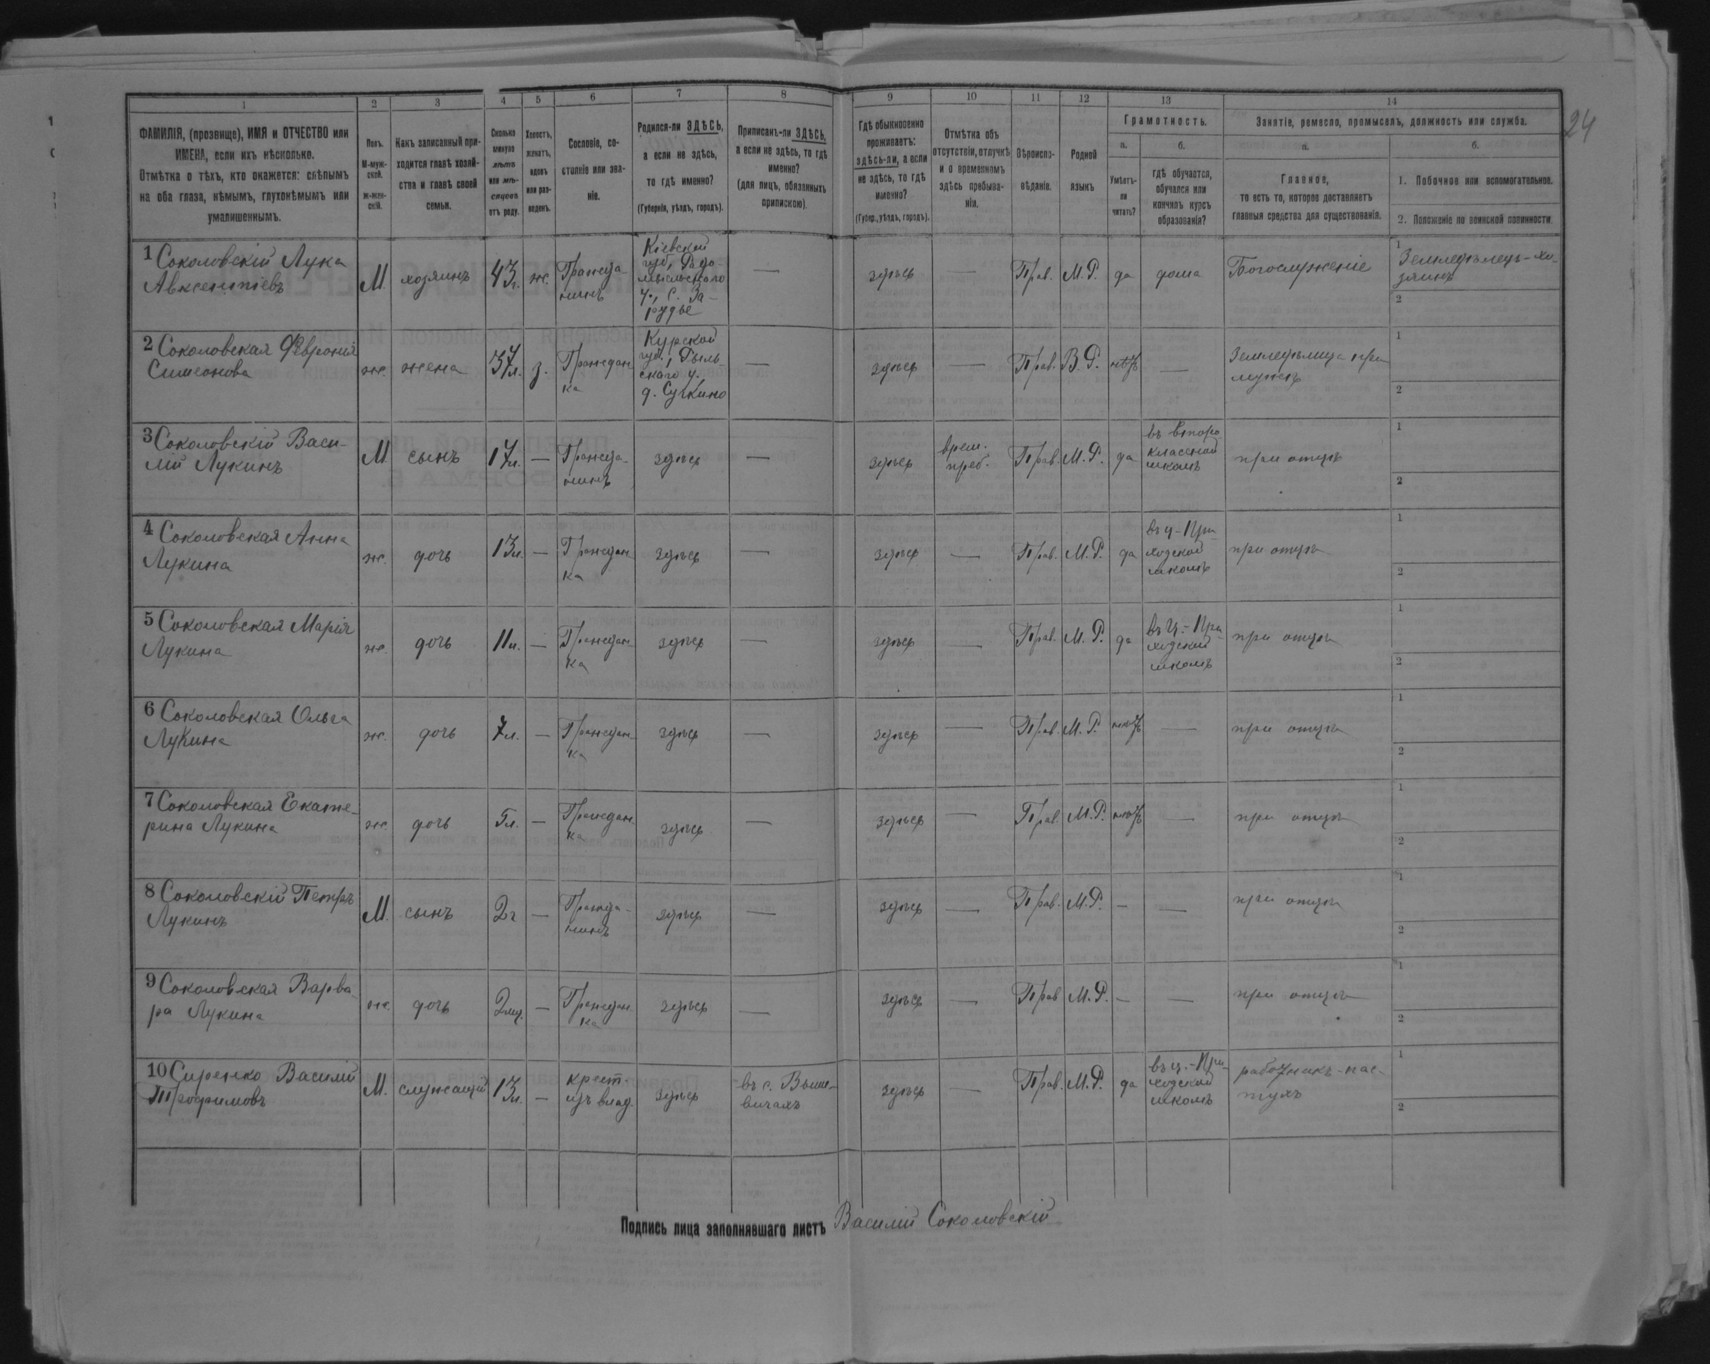 24
1 2 3 4 5 6 7 8 9 10 11 12 13 14
ФАМИЛІЯ, (прозвище), ИМЯ и ОТЧЕСТВО или
ИМЕНА, если ихъ нѣсколько.
Отмѣтка о тѣхъ, кто окажется: слѣпымъ
на оба глаза, нѣмымъ, глухонѣмымъ или
умалишеннымъ.
Полъ.
М-муж-
ской.
ж-жен-
скій.
Какъ записанный при-
ходится главѣ хозяй-
ства и главѣ своей
семьи.
Сколько
минуло
лѣтъ
или мѣ-
сяцевъ
отъ роду.
Холостъ,
женатъ,
вдовъ
или раз-
веденъ.
Сословіе, со-
стояніе или зва-
ніе.
Родился-ли ЗДѢСЬ,
а если не здѣсь,
то гдѣ именно?
(Губернія, уѣздъ, городъ).
Приписанъ-ли ЗДѢСЬ,
а если не здѣсь, то гдѣ
именно?
(для лицъ, обязанныхъ
припискою).
Гдѣ обыкновенно
проживаетъ:
здѣсь-ли, а если
не здѣсь, то гдѣ
именно?
(Губер., уѣздъ, городъ).
Отмѣтка объ
отсутствіи, отлучкѣ
и о временномъ
здѣсь пребыва-
ніи.
Вѣроиспо-
вѣданіе.
Родной
языкъ
Грамотность.
а.
Умѣетъ-
ли
читать?
б.
гдѣ обучается,
обучался или
кончилъ курсъ
образованія?
Занятіе, ремесло, промыселъ, должность или служба.
а.
Главное,
то есть то, которое доставляетъ
главныя средства для существованія.
б.
1. Побочное или вспомогательное.
2. Положеніе по воинской повинности
1 Соколовскій Лука
Авксентіевъ
М. хозяинъ 43 г. ж. Гражда-
нинъ
Кіевской
губ., Радо-
мысльского
у., с. За-
рудье
— здѣсь — Прав. М.Р. да дома Богослуженіе
1 Земледѣлецъ-хо-
зяинъ
2
2 Соколовская Февронія
Симеонова
ж. жена 37 л. з. Граждан-
ка
Курской
губ., Рыль-
ского у.
д. Сучкино
— здѣсь — Прав. В.Р. нѣтъ — Земледѣлица при
мужѣ
1
2
3 Соколовскій Васи-
лій Лукинъ
М. сынъ 17 л. — Гражда-
нинъ
здѣсь — здѣсь врем.
преб.
Прав. М.Р. да въ второ
классной
школѣ
при отцѣ
1
2
4 Соколовская Анна
Лукина
ж. дочь 13 л. — Граждан-
ка
здѣсь — здѣсь — Прав. М.Р. да въ ц-При
ходской
школѣ
при отцѣ
1
2
5 Соколовская Марія
Лукина
ж. дочь 11 л. — Граждан-
ка
здѣсь — здѣсь — Прав. М.Р. да въ ц.-При
ходской
школѣ
при отцѣ
1
2
6 Соколовская Ольга
Лукина
ж. дочь 7 л. — Граждан-
ка
здѣсь — здѣсь — Прав. М.Р. нѣтъ — при отцѣ
1
2
7 Соколовская Екате-
рина Лукина
ж. дочь 5 л. — Граждан-
ка
здѣсь — здѣсь Прав. М.Р. нѣтъ — при отцѣ
1
2
8 Соколовскій Петръ
Лукинъ
М. сынъ 2 г — Гражда-
нинъ
здѣсь — здѣсь — Прав. М.Р. — — при отцѣ
1
2
9 Соколовская Варва-
ра Лукина
ж. дочь 2 мц. — Граждан
ка
здѣсь — здѣсь — Прав М.Р. — — при отцѣ
1
2
10 Сиренко Василій
Трофимовъ
М. служащій 13 л. — крест.
изъ влад.
здѣсь въ с. Выше-
вичахъ
здѣсь — Прав. М.Р. да въ ц.-При-
ходской
школѣ
работникъ-пас-
тухъ
1
2
Подпись лица заполнявшаго листъ Василій Соколовскій